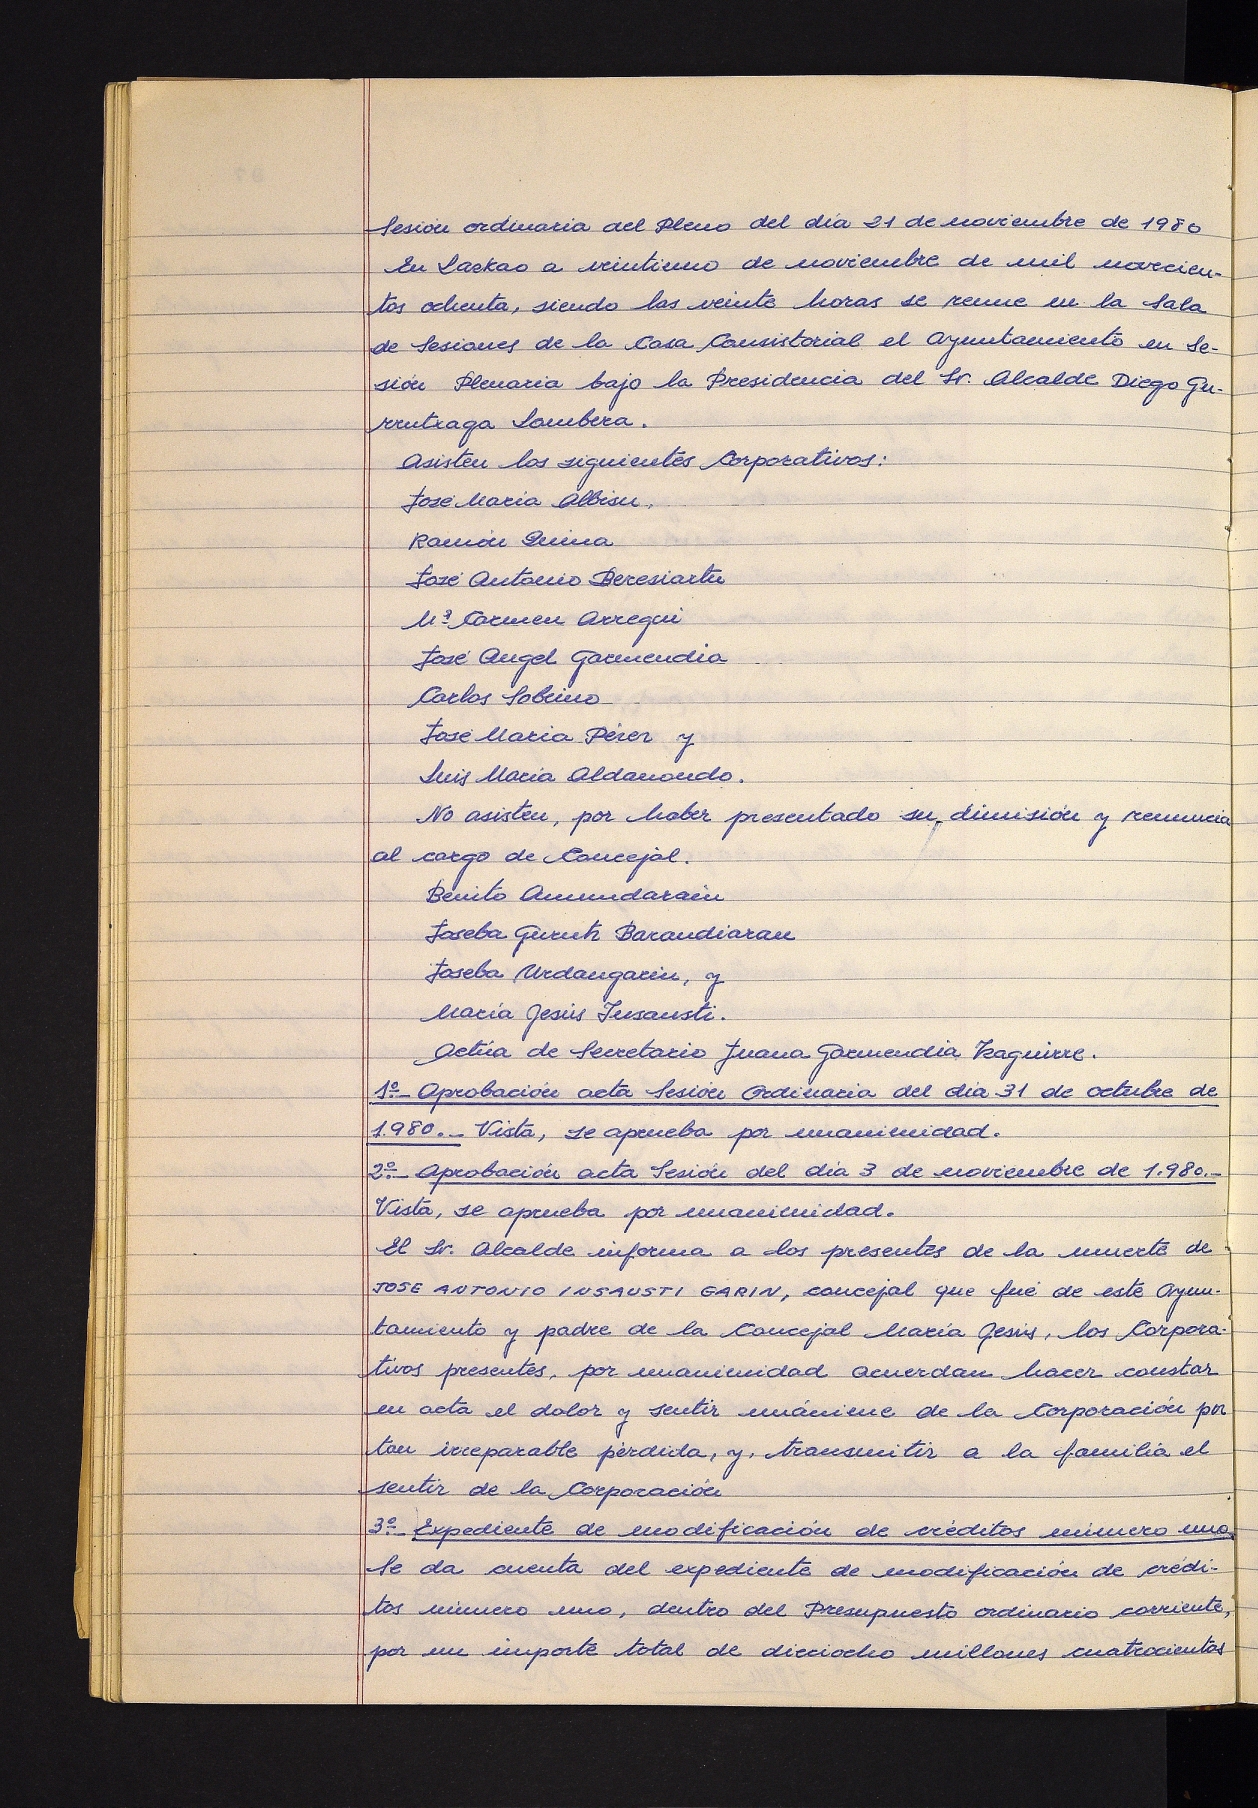 Sesión ordinaria del Pleno del día 21 de noviembre de 1980
En Lazkao a veintiuno de noviembre de mil novecien-
tos ochenta, siendo las veinte horas se reune en la Sala
de Sesiones de la Casa Consistorial el Ayuntamiento en Se-
sión Plenaria bajo la Presidencia del Sr. Alcalde Diego Gu-
rrutxaga Lombera.
Asisten los siguientes Corporativos:
José María Albisu,
Ramón Imina
José Antonio Beresiartu
Mª Carmen Arregui
José Angel Garmendia
Carlos Sobrino
José Maria Pérez y
Luis María Aldanondo.
No asisten, por haber presentado su dimisión y renuncia
al cargo de Concejal.
Benito Amundarain
Joseba Gurutz Barandiaran
Joseba Urdangarin, y
María Jesús Insausti.
Actúa de Secretario Juana Garmendia Izaguirre.
1º- Aprobación acta Sesión Ordinaria del día 31 de octubre de
1.980.- Vista, se aprueba por unanimidad.
2º- Aprobación acta Sesión del día 3 de noviembre de 1.980.-
Vista, se aprueba por unanimidad.
El Sr. Alcalde informa a los presentes de la muerte de
JOSE ANTONIO INSAUSTI GARIN, concejal que fué de este Ayun-
tamiento y padre de la Concejal María Jesús, los Corpora-
tivos presentes, por unanimidad acuerdan hacer constar
en acta el dolor y sentir unánime de la Corporación por
tan irreparable pérdida, y, transmitir a la familia el
sentir de la Corporación
3º- Expediente de modificación de créditos número uno
Se da cuenta del expediente de modificación de crédi-
tos número uno, dentro del Presupuesto ordinario corriente,
por un importe total de dieciocho millones cuatrocientos